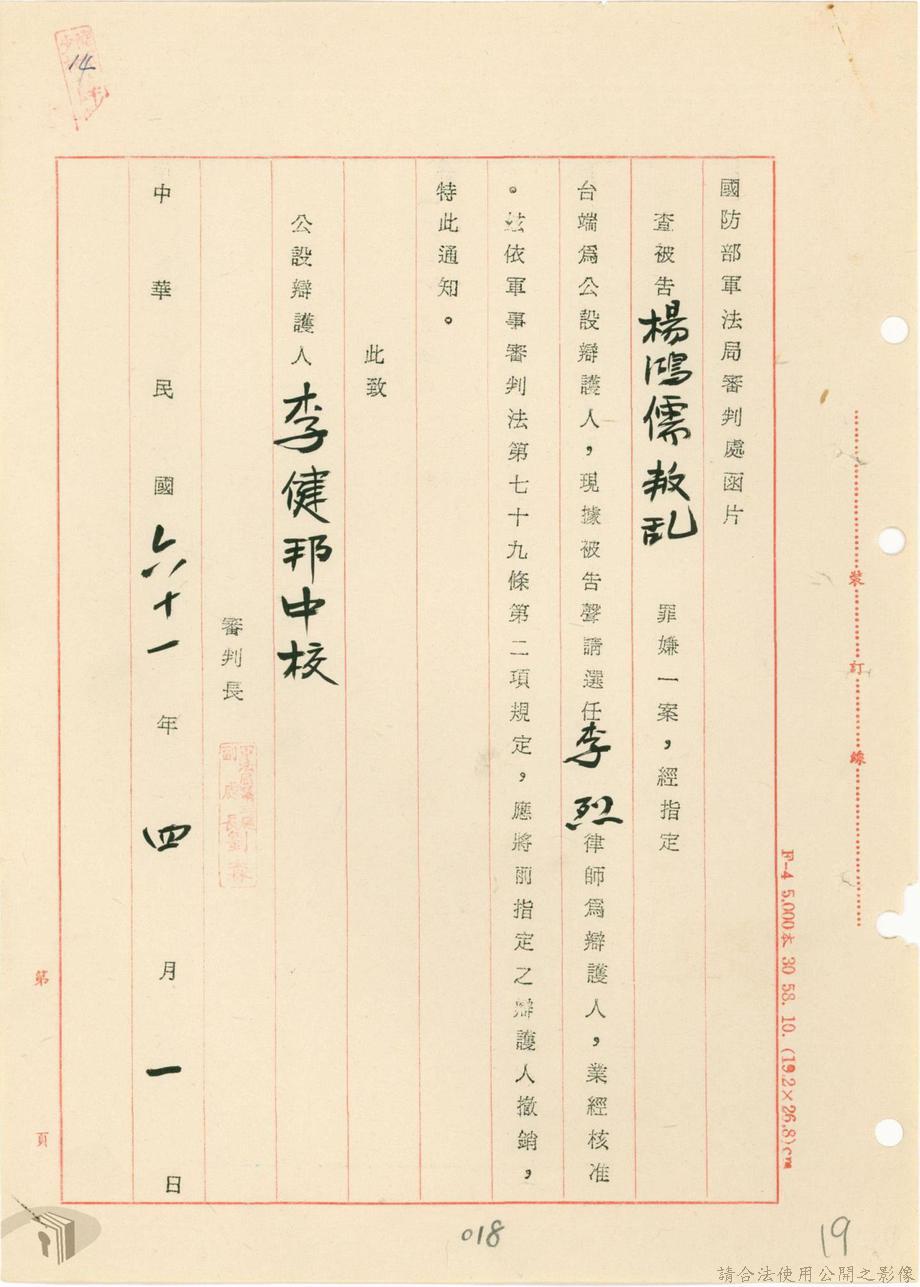 國防部軍法局審判處函片
查被告楊鴻儒叛乱罪嫌一案，經指定
台端為公設辯護人，現據被告聲請選任李烈律師為辯護人，業經核准
。茲依軍事審判法第七十九條第二項規定，應將前指定之辯護人撤銷，
特此通知。
此致
公設辯護人李健邦中校
審判長
副處長劉森
中華民國六十一年四月一日
裝訂線
F-4 5,000本 30 58. 10. (19.2×26.8)cm
第 頁
14
018
19
請合法使用公開之影像